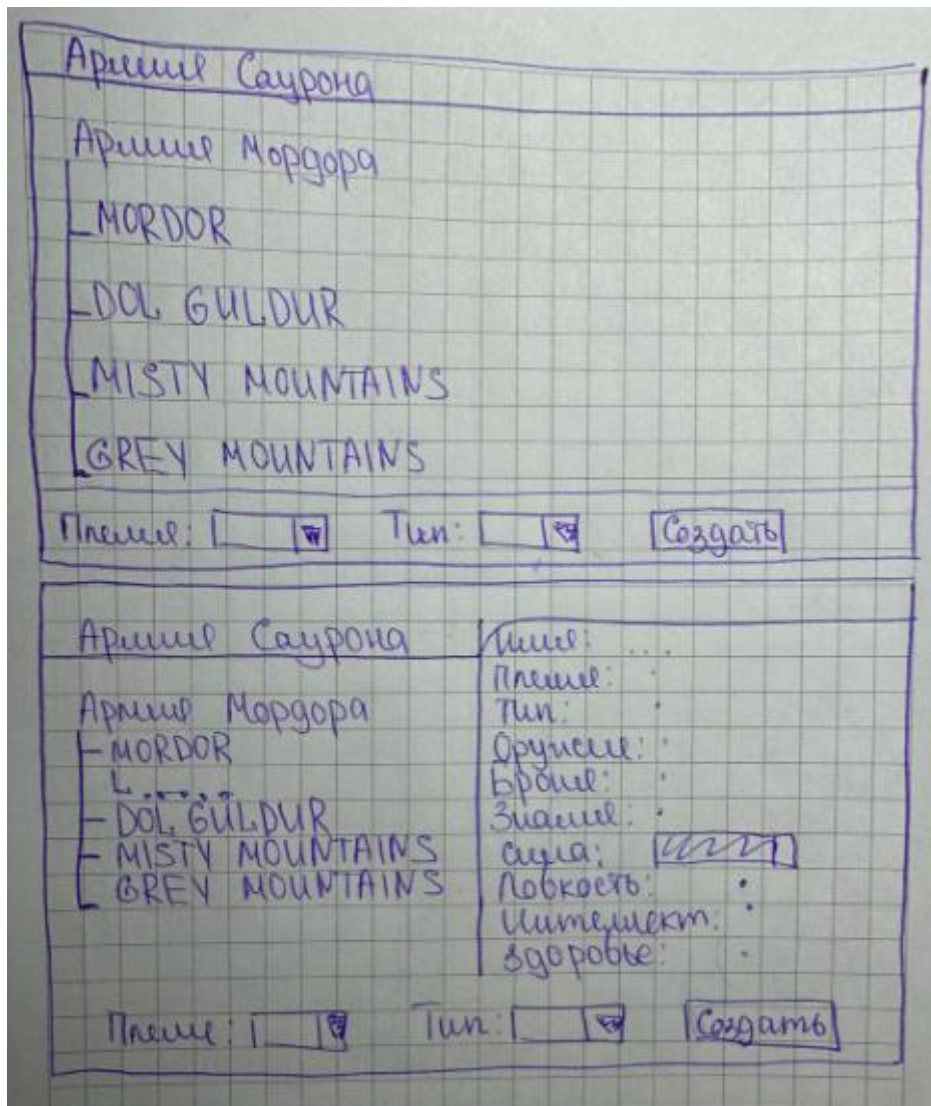 Армия Саурона
Армия Мордора
MORDOR
DOL GULDUR
MISTY MOUNTAINS
GREY MOUNTAINS
Племя: Тип: Создать
Армия Саурона
Армия Мордора
MORDOR
.....
DOL GULDUR
MISTY MOUNTAINS
GREY MOUNTAINS
Имя: ...
Племя: .
Тип: .
Оружие: .
Броня: .
Знамя: .
Сила:
Ловкость: .
Интеллект: .
Здоровье: .
Племя: Тип: Создать